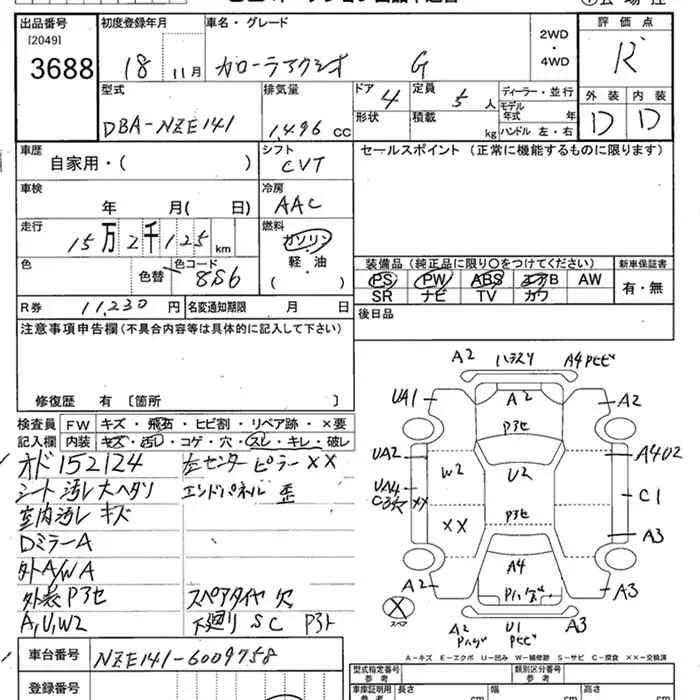 出品番号
[2049]
3688
初度登録年月
18 11月
車名・グレード
カローラアクシオ G
2WD
・
4WD
評価点
R
外装 内装
D D
型式
DBA-NZE141
排気量
1,496 CC
ドア 4
形状
定員 5 人
積載 kg
ディーラー・並行
モデル年式 年
ハンドル 左・右
車歴
自家用・( )
シフト
CVT
セールスポイント (正常に機能するものに限ります)
車検
年 月( 日)
冷房
AAC
走行
15万2千125 km
燃料
ガソリン
軽・油
( ・ )
色
色替
色コード
8S6
装備品 (純正品に限り○をつけてください)
PS PW ABS エアB AW
SR ナビ TV カワ
新車保証書
有・無
R券 11,230 円
名変通知期限 月 日
後日品
注意事項申告欄(不具合内容等は具体的に記入して下さい)
修復歴 有 〔箇所 〕
検査員
記入欄
FW キズ・飛石・ヒビ割・リペア跡・×要
内装 キズ・汚レ・コゲ・穴・スレ・キレ・破レ
オド152124
シート汚レ大ヘタリ
室内汚レキズ
DミラーA
外A/WA
外装Pスセ
A,U,W2
左センターピラーXX
エンドパネル 歪
スペアタイヤ欠
下廻り SC Pスト
A2 ハラスリ A4Pヒビ
UA1
A2
A2
Pスセ
UA2
W2
U2
A4U2
UA4
XX
XX
Pスセ
C1
A4
A3
A2
A3
スペア
A2
U1
Pヒビ
A3
A-キズ E-エクボ U-凹み W-補修跡 S-サビ C-腐食 XX-交換済
車台番号
NZE141-6009758
登録番号
型式指定番号
参考
類別区分番号
参考
車庫証明用
参考
長さ cm
幅 cm
高さ cm